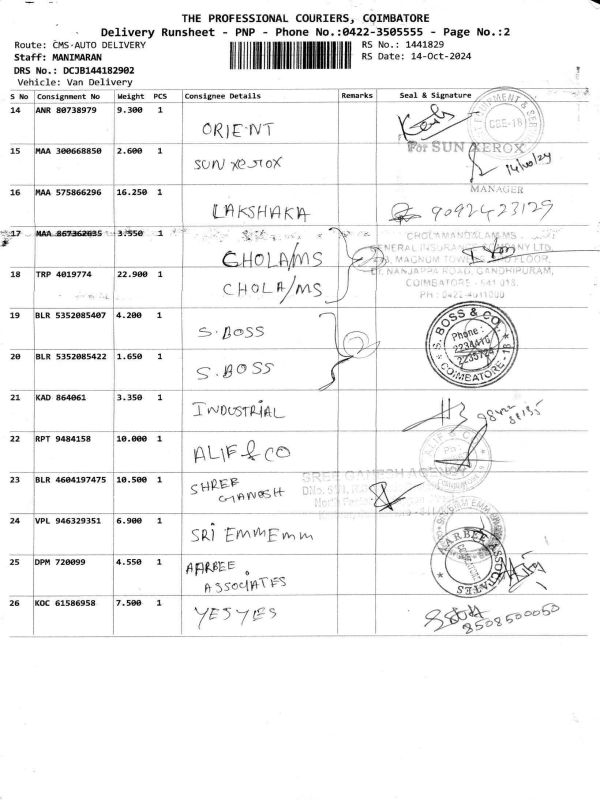 THE PROFESSIONAL COURIERS, COIMBATORE
Delivery Runsheet - PNP - Phone No.:0422-3505555 - Page No.:2
Route: CMS-AUTO DELIVERY
RS No.: 1441829
Staff: MANIMARAN
RS Date: 14-Oct-2024
DRS No.: DCJB144182902
Vehicle: Van Delivery
S No Consignment No Weight PCS Consignee Details Remarks Seal & Signature
14 ANR 80738979 9.300 1
ORIENT
15 MAA 300668850 2.600 1
SUN XEROX
For SUN XEROX
14/10/24
MANAGER
16 MAA 575866296 16.250 1
LAKSHAKA
9092423129
17 MAA 867362635 3.550 1
CHOLA/MS
CHOLAMANDALAM MS
GENERAL INSURANCE COMPANY LTD
MAGNUM FLOOR,
NANJAPPA ROAD, GANDHIPURAM,
COIMBATORE - 641 018.
PH: 0422-4011000
18 TRP 4019774 22.900 1
CHOLA/MS
19 BLR 5352085407 4.200 1
S.BOSS
S. BOSS & CO.
Phone:
COIMBATORE-18
20 BLR 5352085422 1.650 1
S.BOSS
21 KAD 864061 3.350 1
INDUSTRIAL
22 RPT 9484158 10.000 1
ALIF & CO
ALIF & CO
23 BLR 4604197475 10.500 1
SHREE
GANESH
SREE GANESH
24 VPL 946329351 6.900 1
SRI EMMEmm
25 DPM 720099 4.550 1
AARBEE
ASSOCIATES
AARBEE ASSOCIATES
26 KOC 61586958 7.500 1
YESYES
8508500050